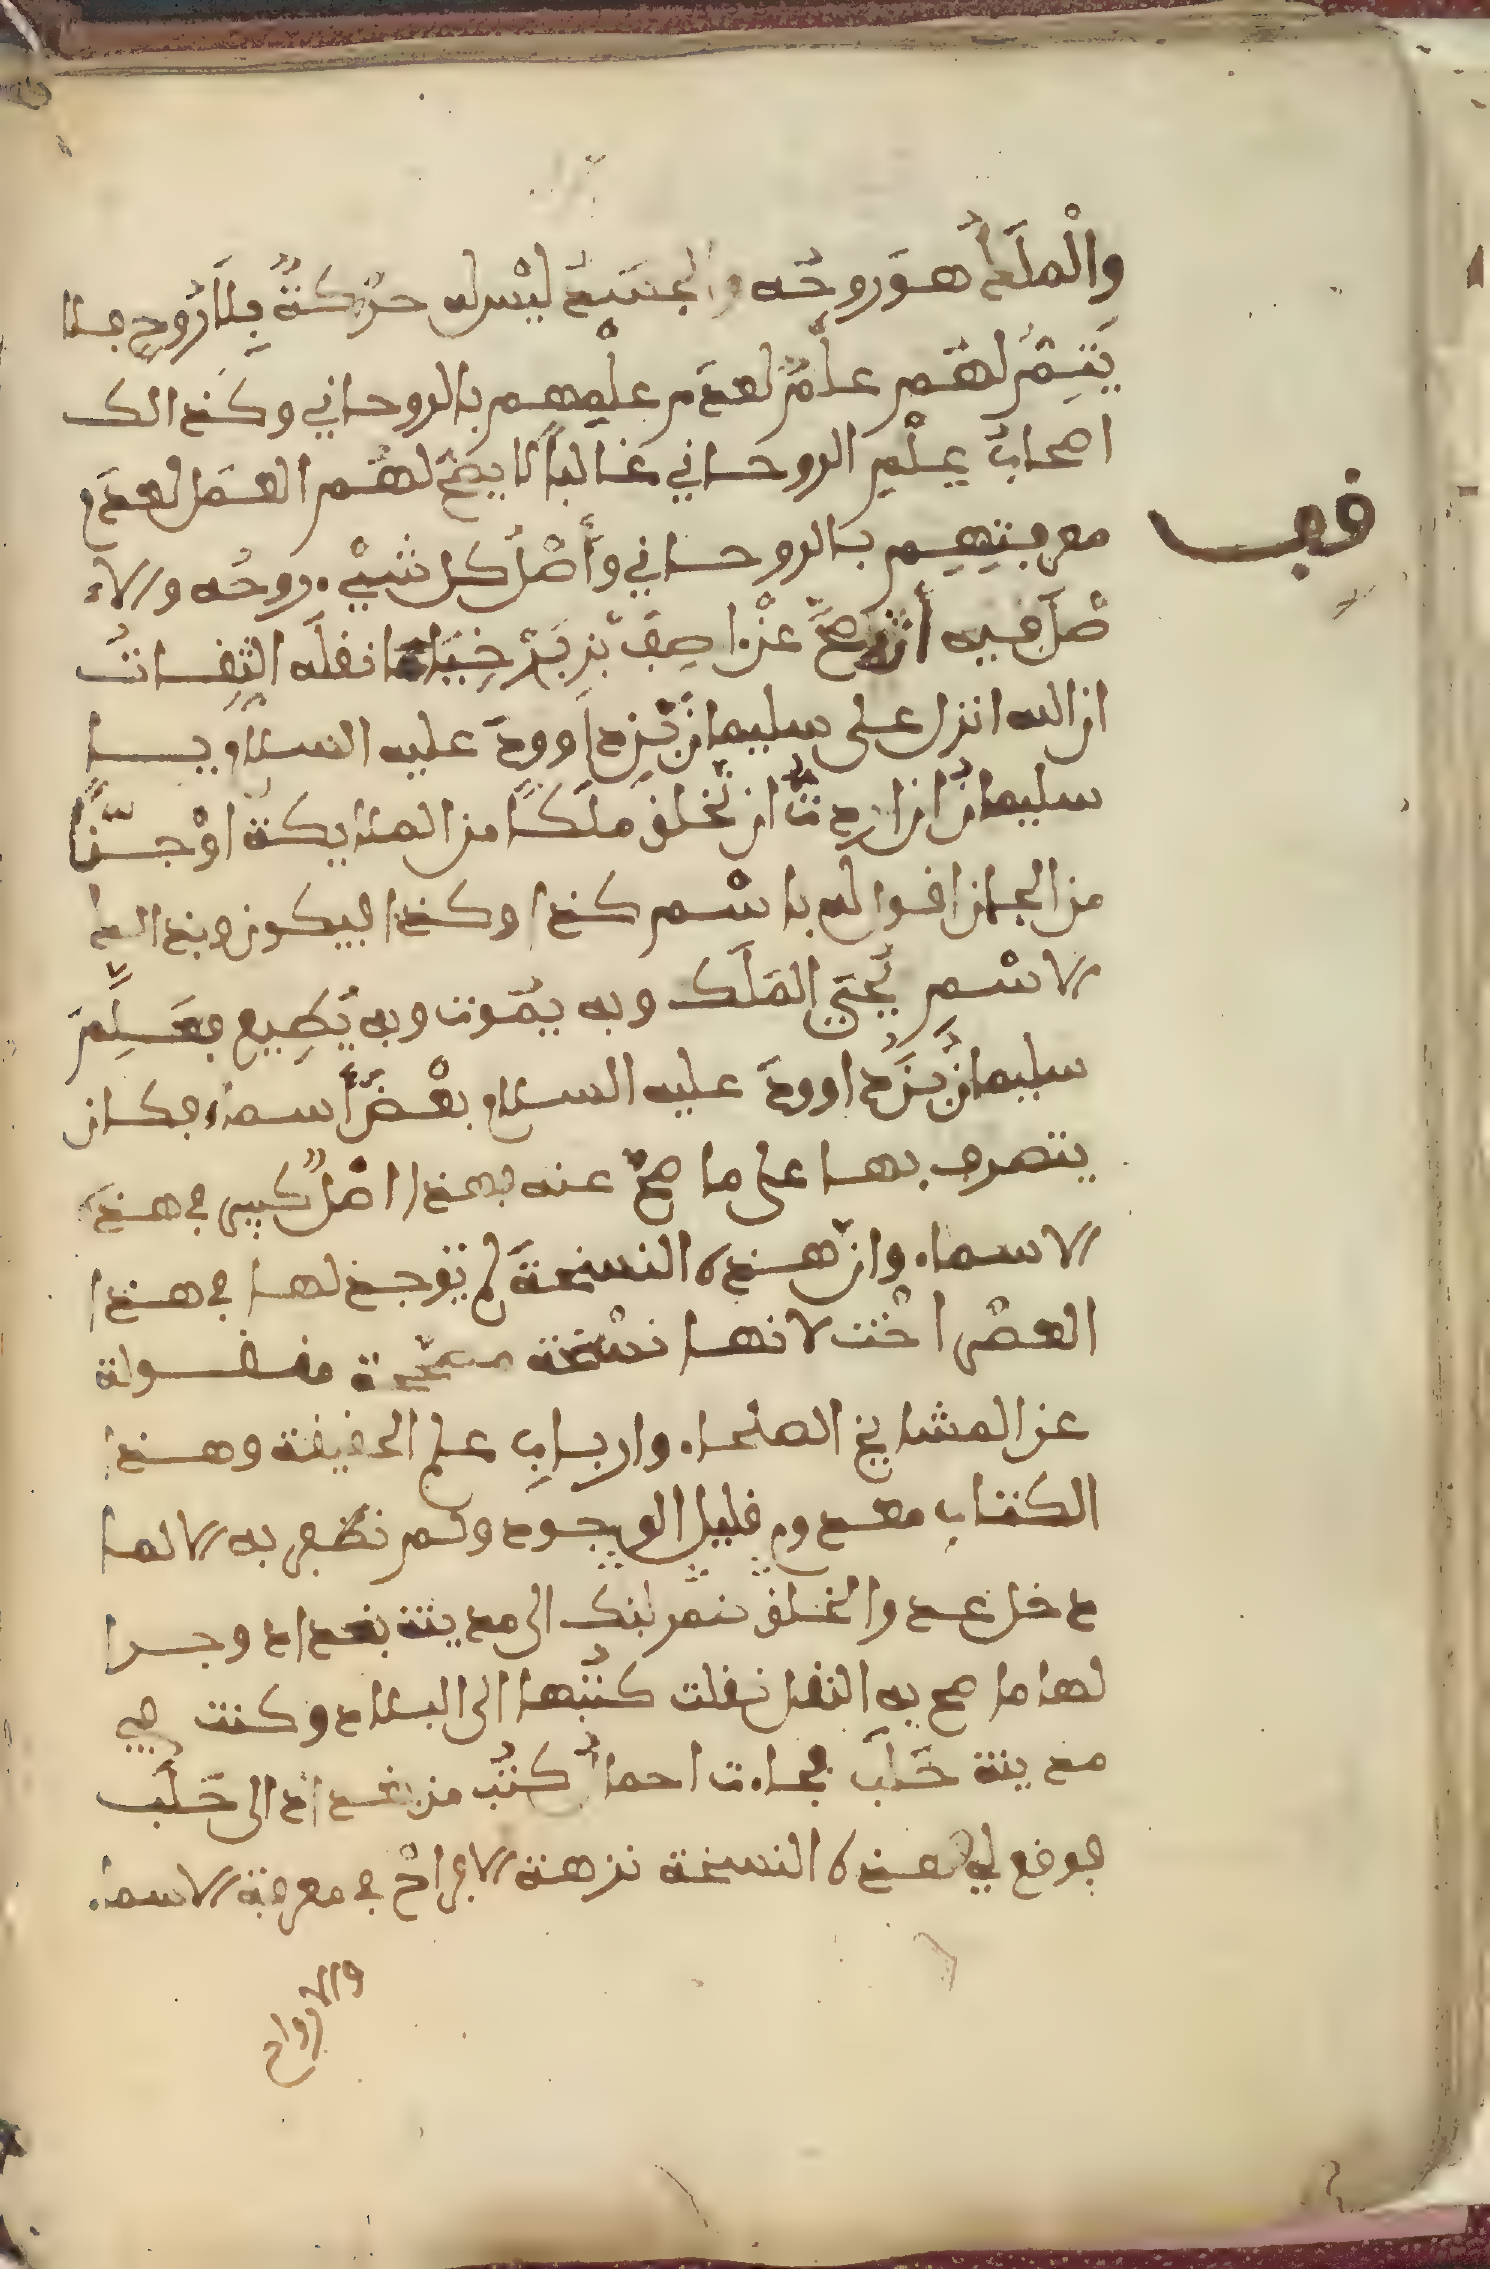 والْملَحُ هوَ روحُه والجسَدُ ليْس له حرَكةٌ بِلَا رُوحٍ فلا
يَتِمُّ لهُم علْمٌ لعدم علْمِهم بالروحاني وكذالك
اصحابُ علْمِ الروحاني غالباً لا يصحُّ لهُم العمَل لعدَم
معرفتِهِم بالروحاني وأَصْلُ كل شيْء روحُه والا
صْلُ فيه أنه صحَّ عنْ اصِف بْن بَرْخِيَا مما نقلَه الثِقاتُ
ان الله انزل على سليمانَ بْنِ داوودَ عليه السلام يا
سليمانُ ان اردتُّ ان نَخلقَ ملَكًا من الملايكة اوْ جِنًّا
من الجان اقول له باسْم كذا وكذا فيكون فبذالك
الاسْمِ يُحْيَى الملَك وبه يمُوت وبه يُطيع فعَلِمَ
سليمانُ بْنُ داوودَ عليه السلام بعْضَ أسماء فكان
يتصرف بها على ما صحَّ عنه فهذا اصْلٌ كبير في هذه
الاسماء وانّ هذه النسخةَ لم توجد لها في هذا
العصْر اخْت لانها نسْخة منقولة
عن المشايخ الصلحاء وارباب علم الحقيقة وهذا
الكتاب معدوم قليل الوجود ولم نظفر به الا لما
دخل عدو الخلق تمرلنك الى مدينة بغداد وجرا
لها ما صح به النقل نقلت كتُبها الى البلاد وكنت في
مدينة حَلَب فجاءت احمالُ كتُب من بغداد الى حَلَب
فوقع لي هذه النسخة نزهة الافراحْ في معرفة الاسماء
والارواح
قف